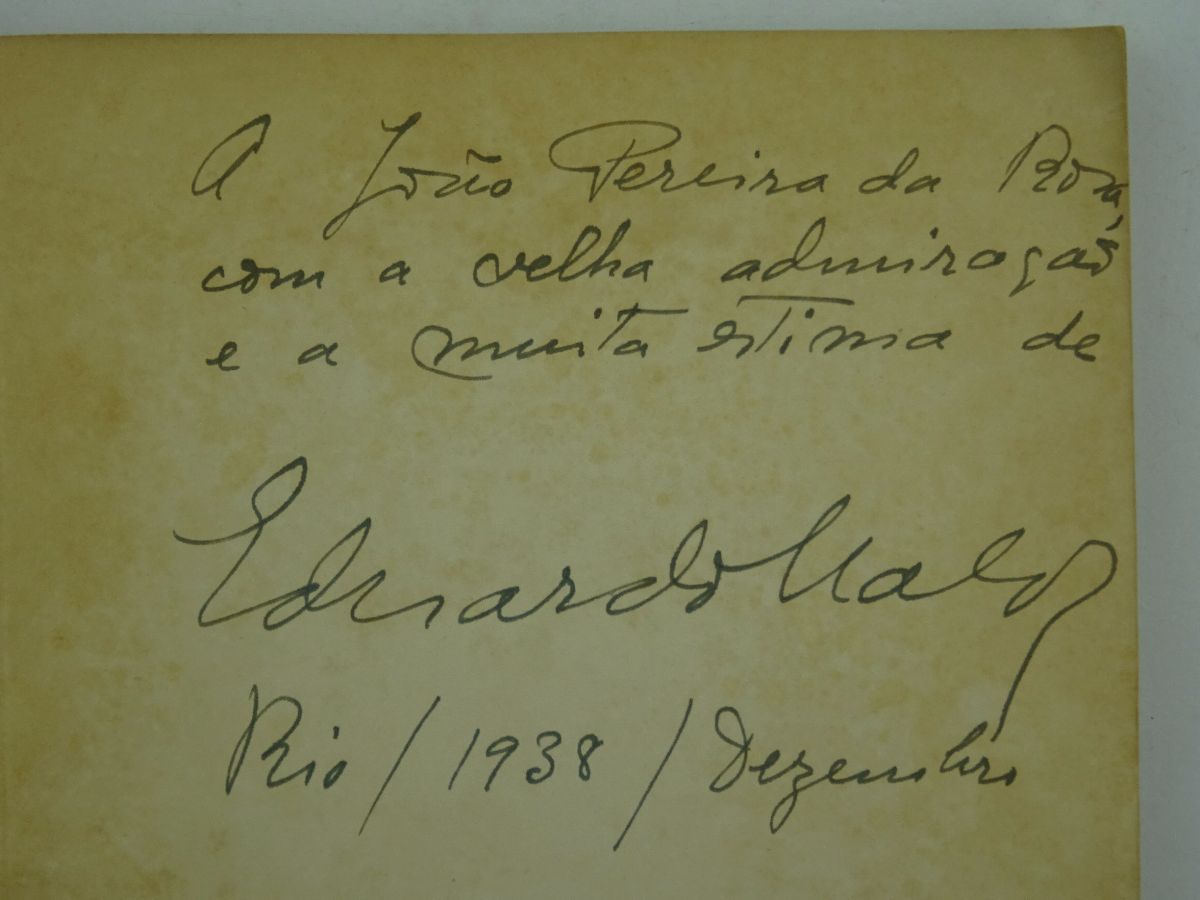 A João Pereira da Rosa,
com a velha admiração
e a muita estima de
Eduardo Malta
Rio / 1938 / Dezembro